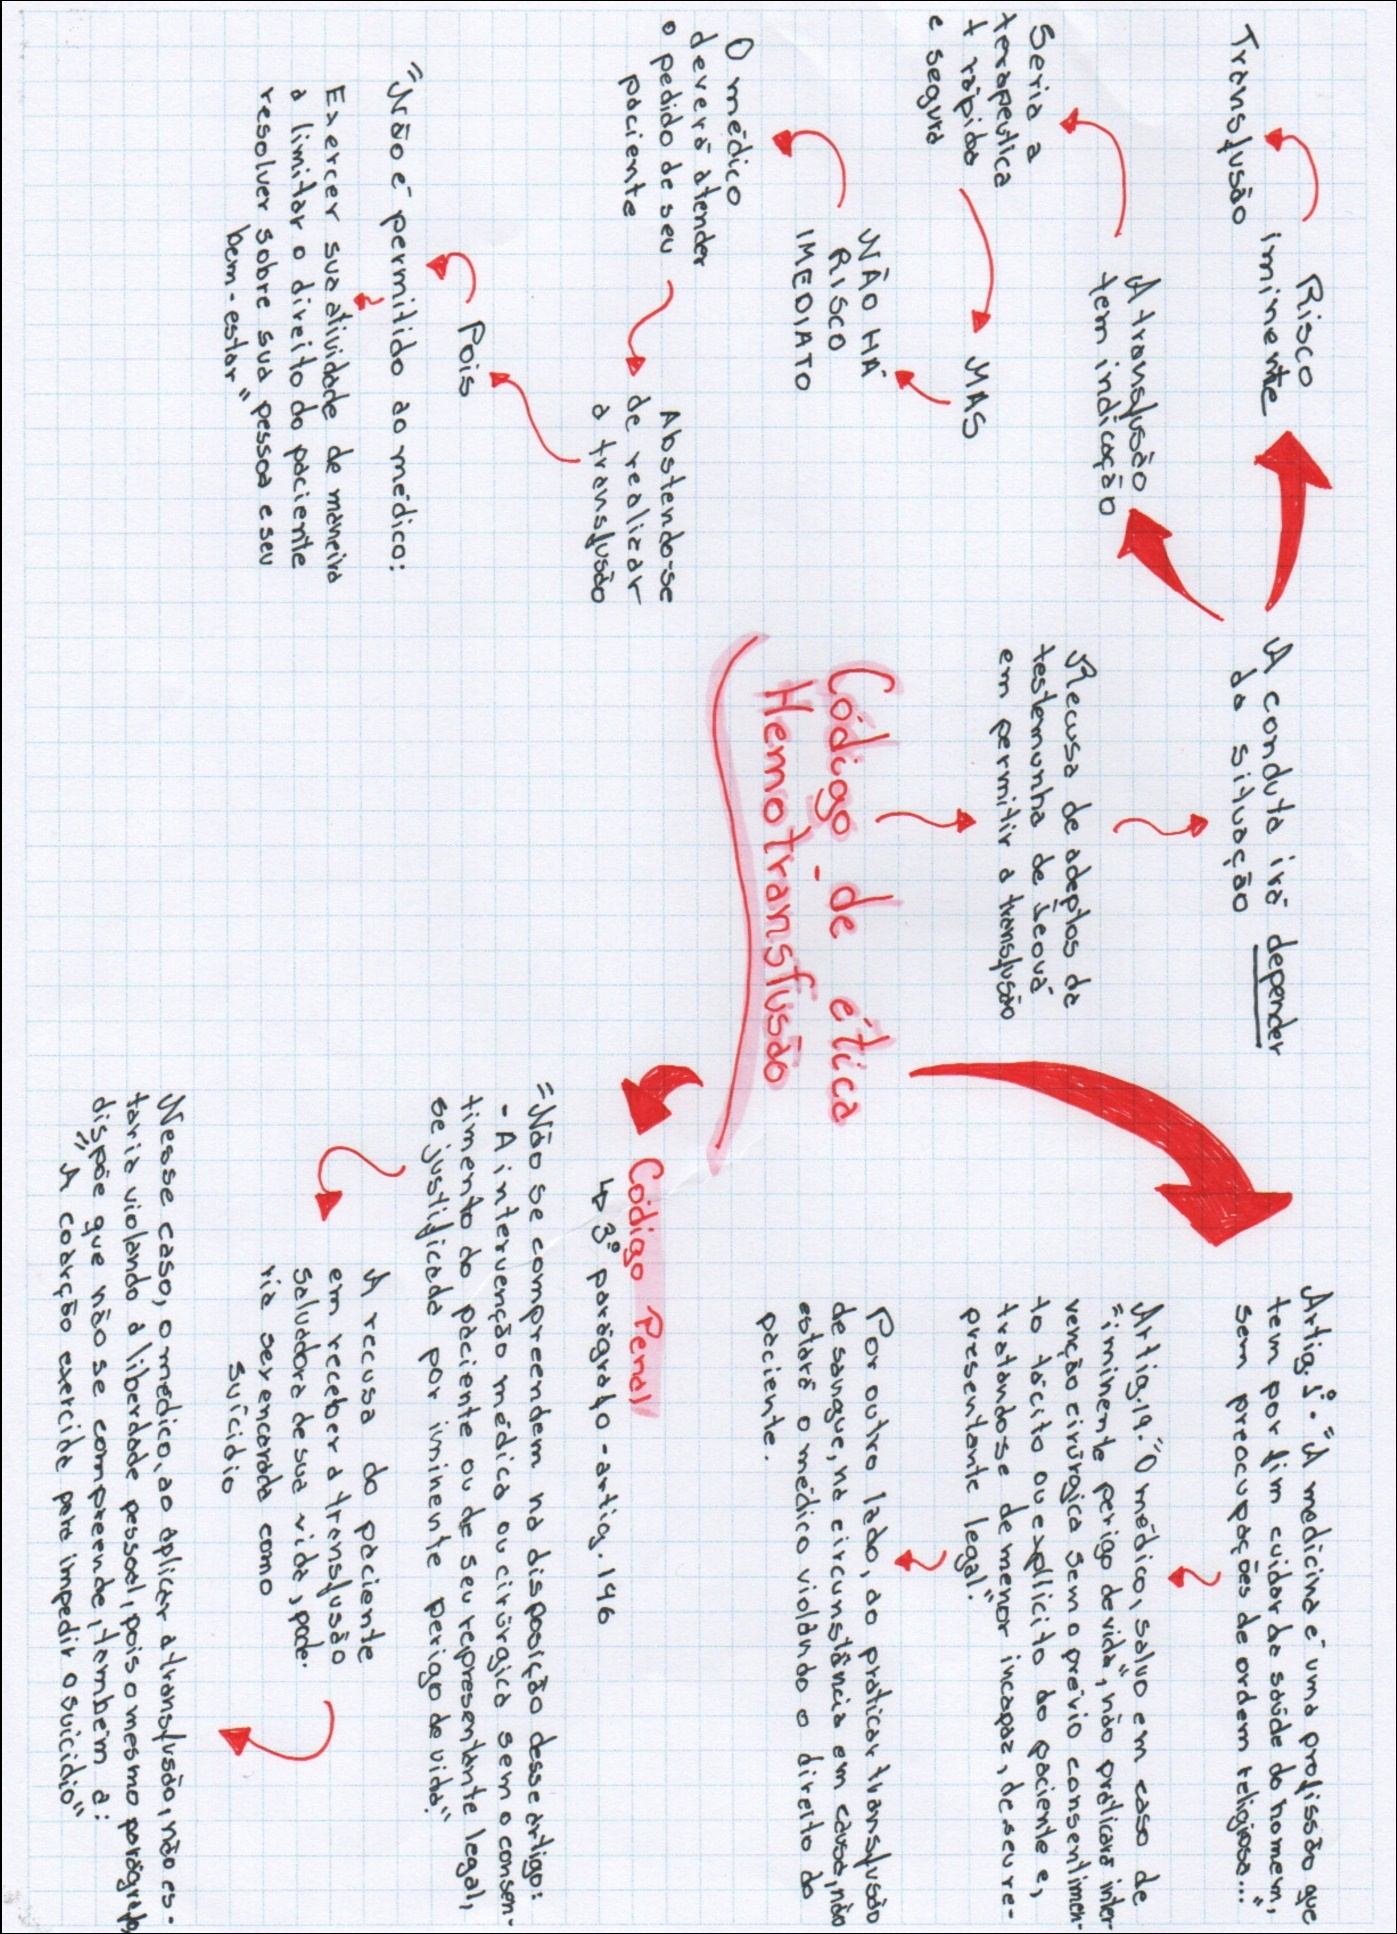 Código de ética
Hemotransfusão
Recusa de adeptos da
testemunha de Jeová
em permitir a transfusão
A conduta irá depender
da situação
Risco
iminente
Transfusão
A transfusão
tem indicação
Seria a
terapeutica
+ rápida
e segura
MAS
NÃO HÁ
RISCO
IMEDIATO
O médico
deverá atender
o pedido de seu
paciente
Abstendo-se
de realizar
a transfusão
Pois
"Não é permitido ao médico:
Exercer sua atividade de maneira
a limitar o direito do paciente
resolver sobre sua pessoa e seu
bem-estar"
Artig. 1º. "A medicina é uma profissão que
tem por fim cuidar da saúde do homem,
sem preocupações de ordem religiosa..."
Artig.19. "O médico, salvo em caso de
"iminente perigo de vida", não praticará inter-
venção cirúrgica sem o prévio consentimen-
to tácito ou explícito do paciente e,
tratando-se de menor incapaz, de seu re-
presentante legal."
Por outro lado, ao praticar transfusão
de sangue, na circunstância em causa, não
estará o médico violando o direito do
paciente.
Código Penal
↳ 3º parágrafo - artig. 146
"Não se compreendem na disposição desse artigo:
- A intervenção médica ou cirúrgica sem o consen-
timento do paciente ou de seu representante legal,
se justificada por iminente perigo de vida."
A recusa do paciente
em receber a transfusão
salvadora de sua vida, pode-
ria ser encarada como
suicídio
Nesse caso, o médico, ao aplicar a transfusão, não es-
taria violando a liberdade pessoal, pois o mesmo parágrafo,
dispõe que não se compreende, também a:
"A coarção exercida para impedir o suicídio"